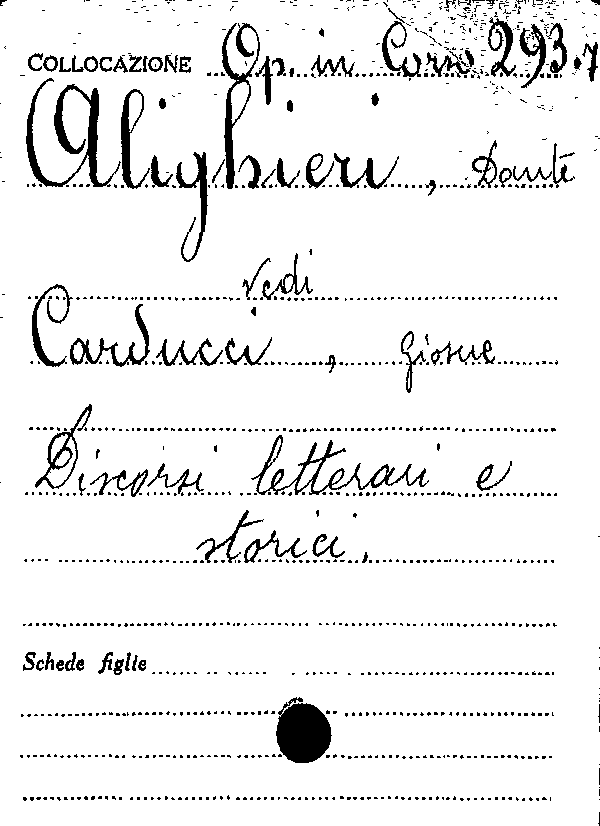 COLLOCAZIONE Op. in Corso 293.7
Alighieri, Dante
Vedi
Carducci, Giosue
Discorsi letterari e
storici.
Schede figlie